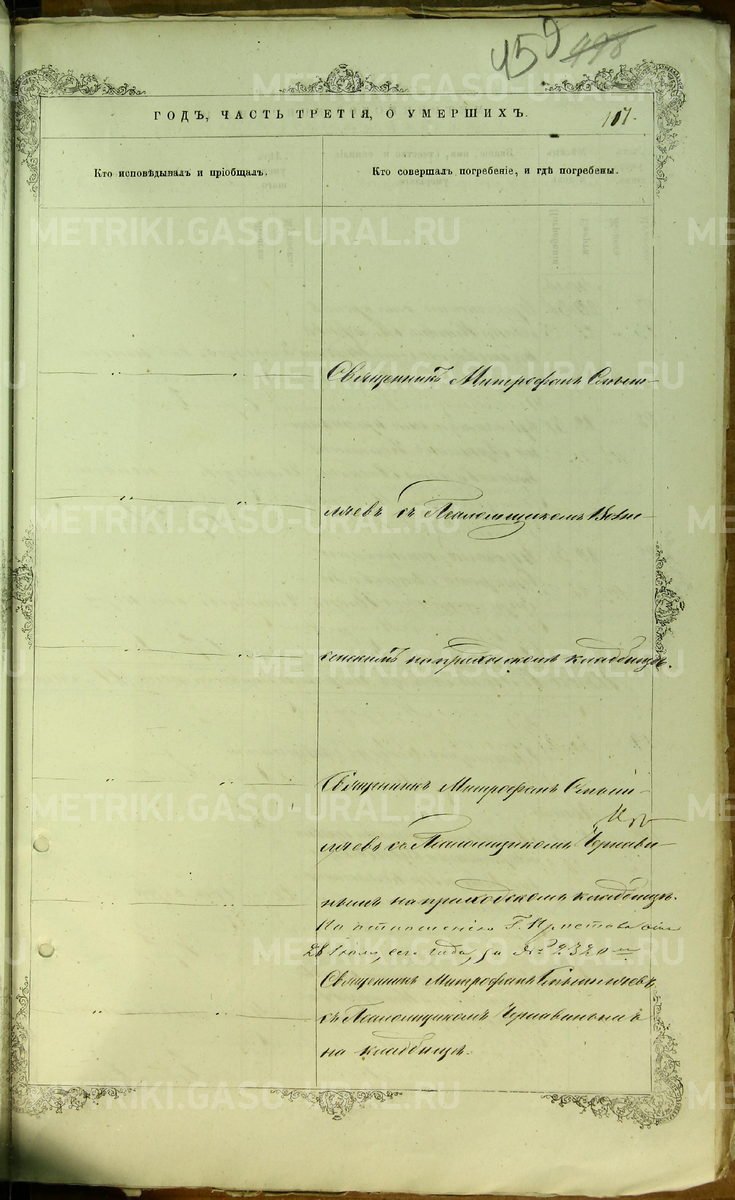 459 478
ГОДЪ, ЧАСТЬ ТРЕТІЯ, О УМЕРШИХЪ.
107.
Кто исповѣдывалъ и пріобщалъ.
Кто совершалъ погребеніе, и гдѣ погребены.
Священникъ Митрофанъ
ляевъ съ Псаломщикомъ
на приходскомъ кладбищѣ.
Священникъ Митрофанъ
ляевъ съ Псаломщикомъ Чернави-
нымъ на приходскомъ кладбищѣ.
По отношенію Г. Пристава
28 Іюля, сего года, за № 2320
Священникъ Митрофанъ
съ Псаломщикомъ Чернавинымъ
на кладбищѣ.
METRIKI.GASO-URAL.RU